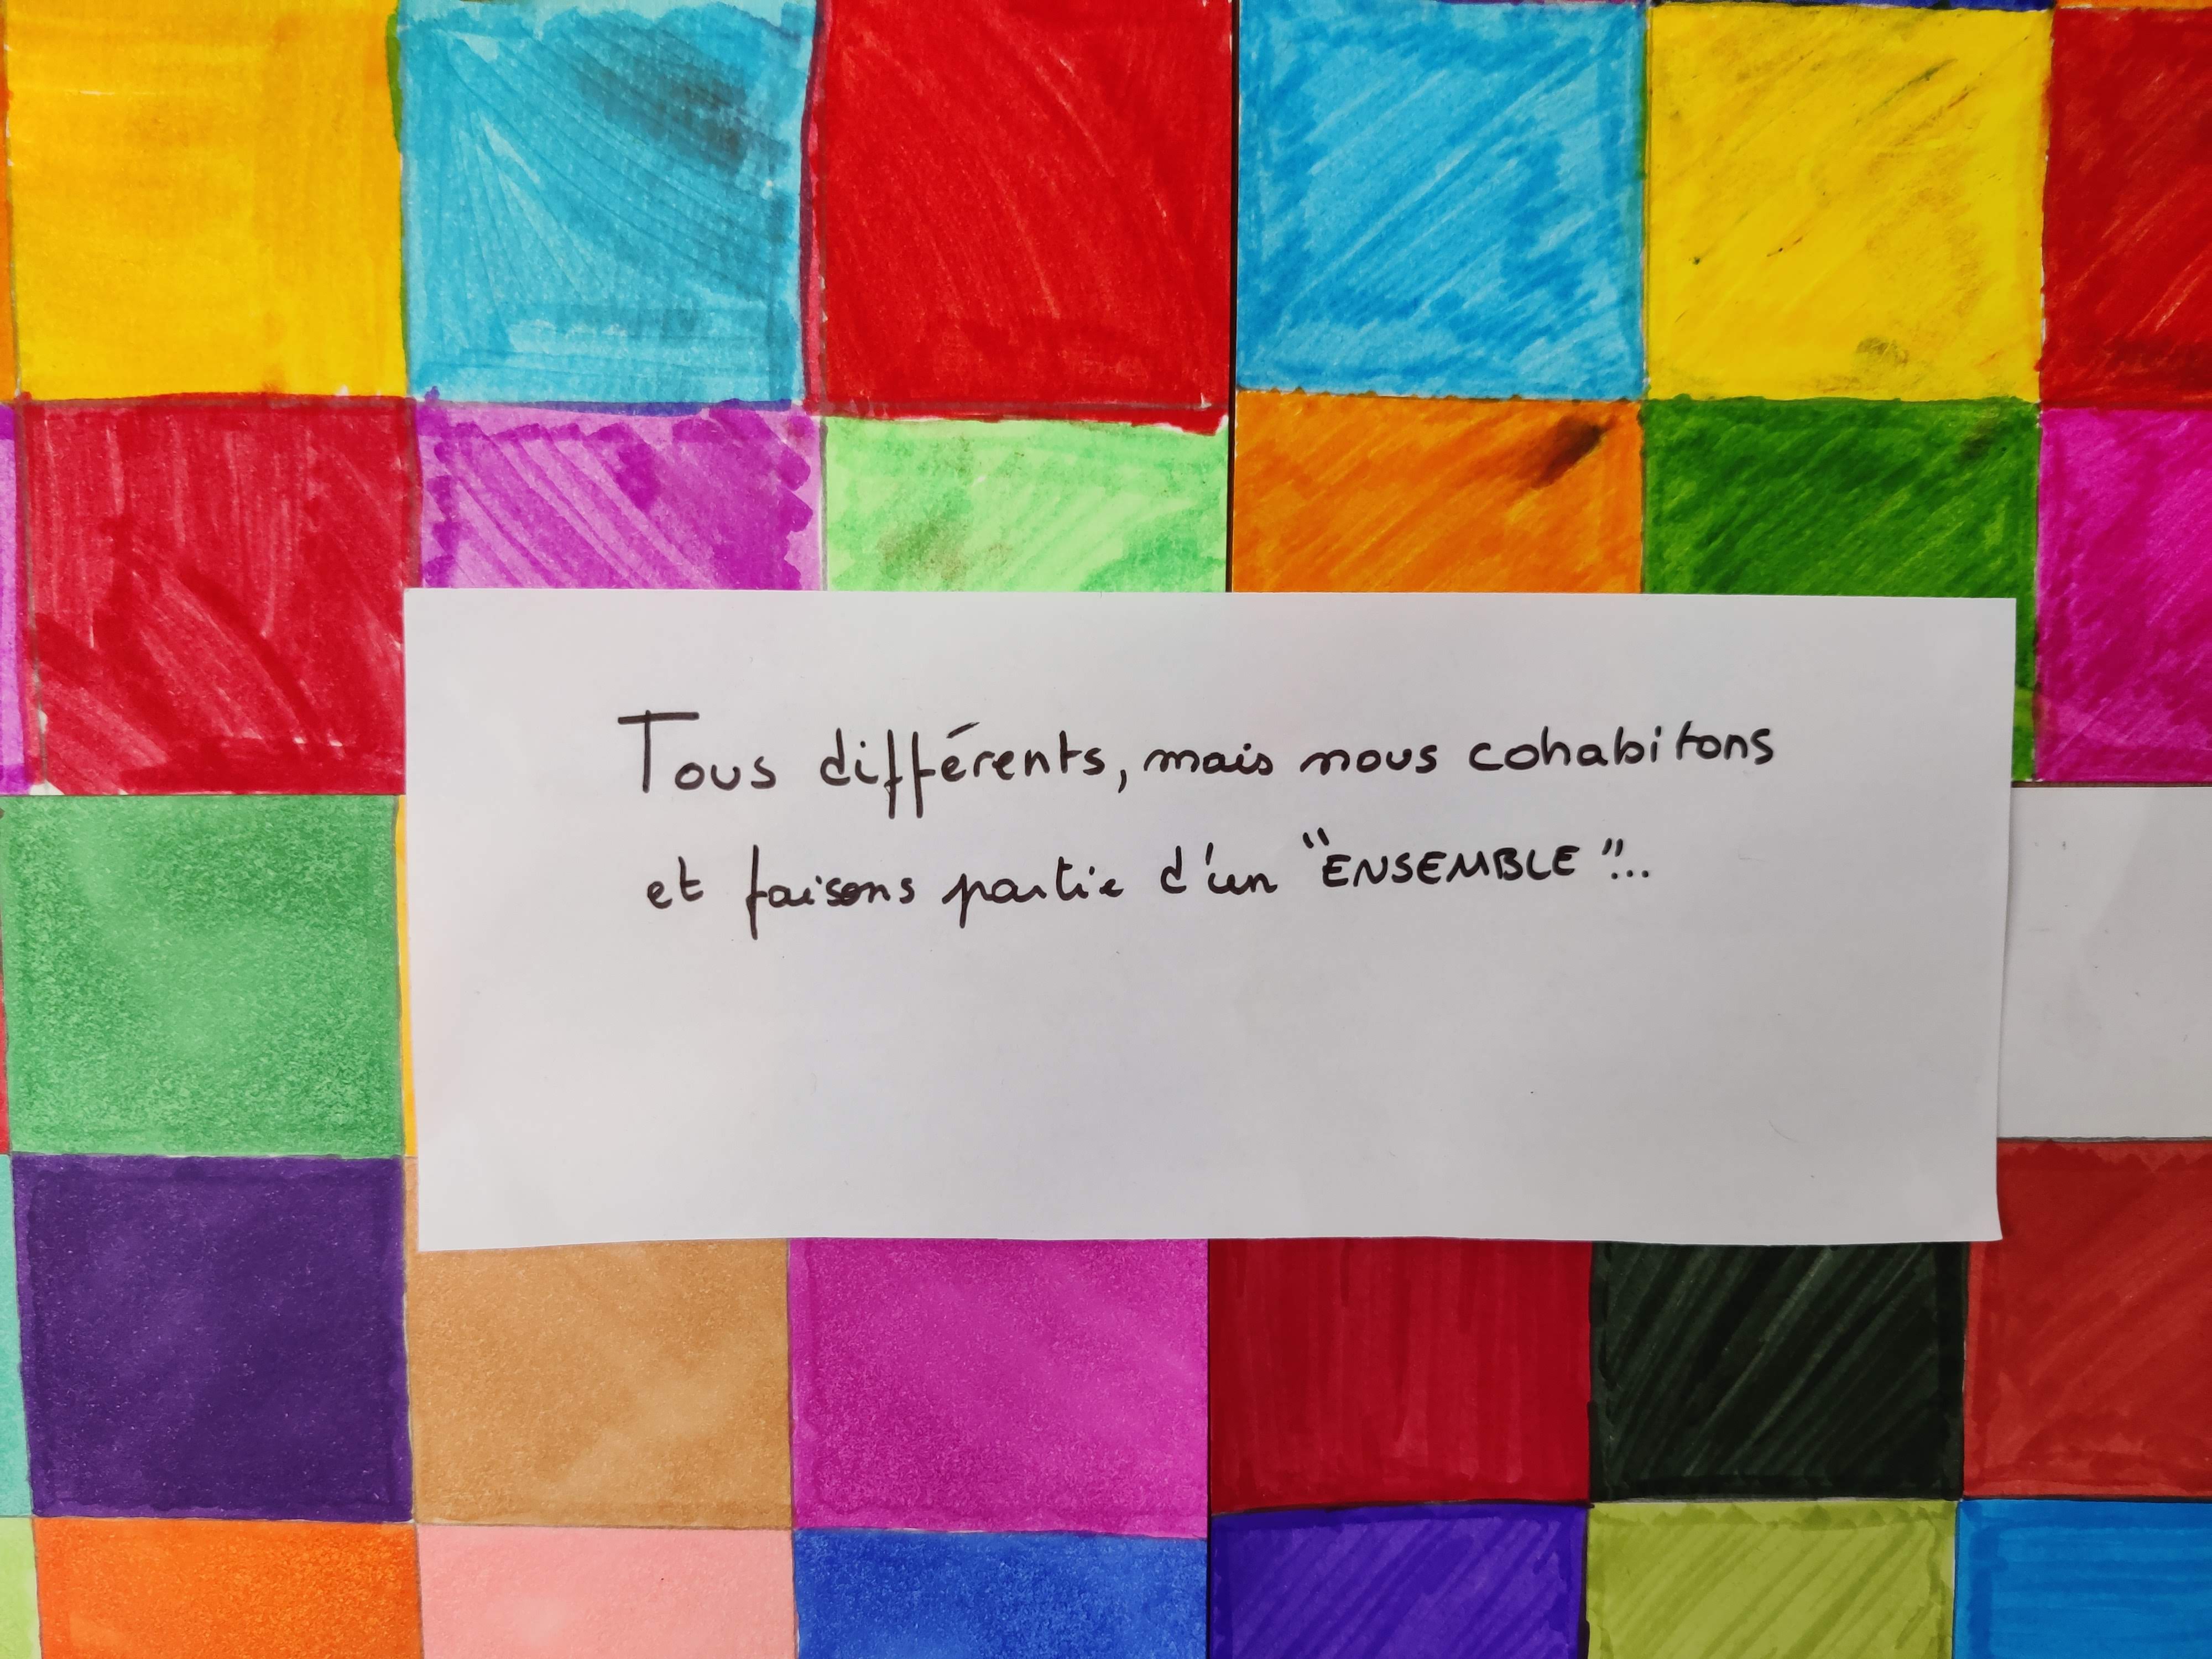 Tous différents, mais nous cohabitons
et faisons partie d'un "ENSEMBLE"...